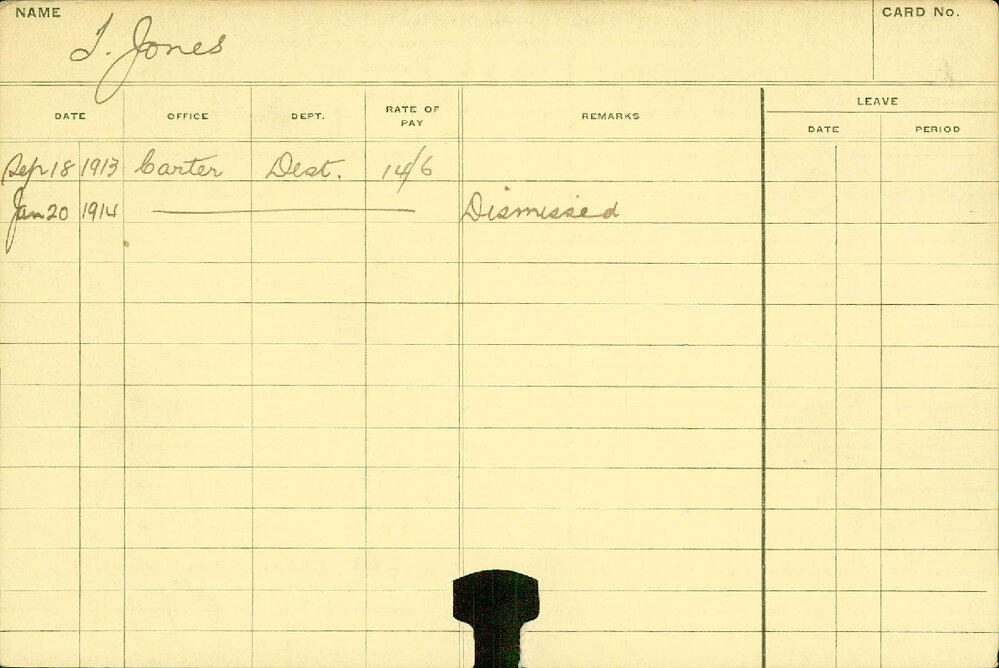 NAME
T. Jones
CARD No.
DATE OFFICE DEPT. RATE OF PAY REMARKS LEAVE
DATE PERIOD
Sep 18 1913 Carter Dest. 14/6
Jan 20 1914 Dismissed